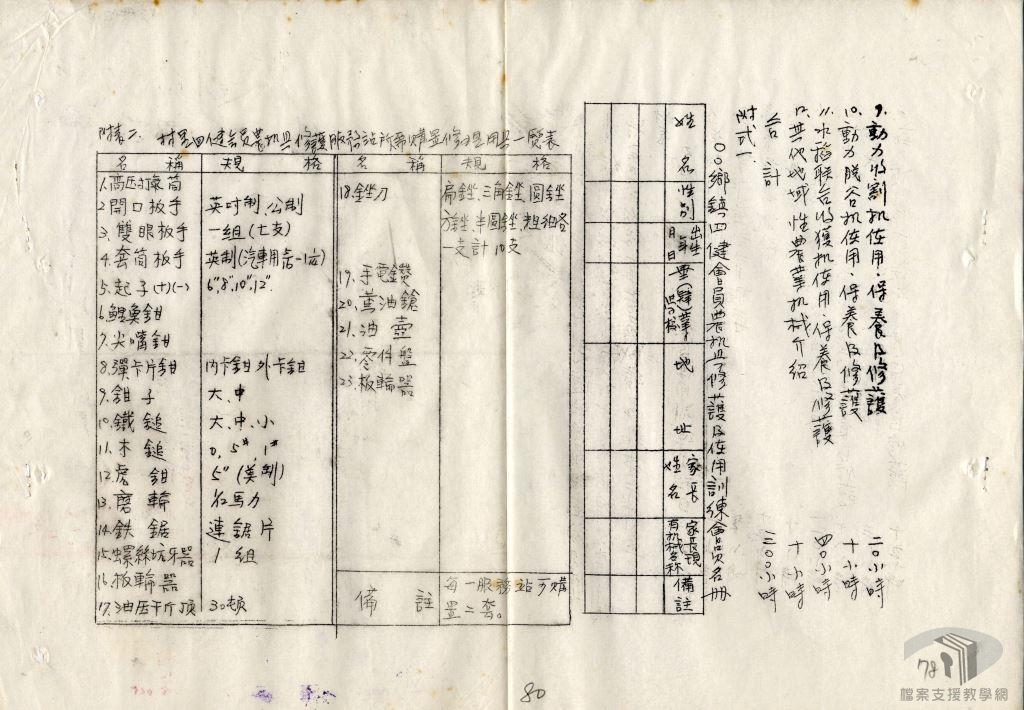 9.動力收割机使用.保養及修護 二〇小時
10.動力脫谷机使用.保養及修護 十小時
11.水稻联合收獲机使用.保養及修護 四〇小時
12.其他地域性農業机械介紹 十小時
合計 三〇〇小時
附式一
〇〇鄉鎮四健會員農机具修護及使用訓練會員名冊
姓名
性別
出生年月日
畢(肄)業學校
地址
家長姓名
家長現有机械名称
備註
附表二. 村里四健會員農机具修護服務站所需購置修理用具一覽表
名稱 規格 名稱 規格
1.高压打氣筒
2.開口扳手 英吋制.公制
3.雙眼板手 一組(七支)
4.套筒板手
5.起子(+)(-) 6",8",10",12".
6.鯉魚鉗
7.尖嘴鉗
8.彈卡片鉗 內卡鉗 外卡鉗
9.鉗子 大.中
10.鐵鎚 大.中.小
11.木鎚 0.5#. 1#
12.虎鉗 5"(英制)
13.磨輪 1/2馬力
14.鉄鋸 連鋸片
15.螺絲攻牙器 1組
16.板輪器
17.油压千斤頂 30頓
18.銼刀 扁銼.三角銼.圓銼
方銼.半圓銼.粗細各
一支計10支
19.手電鑽
20.黃油鎗
21.油壺
22.零件盤
23.板輪器
備註 每一服務站可購
置二套。
80
78
檔案支援教學網